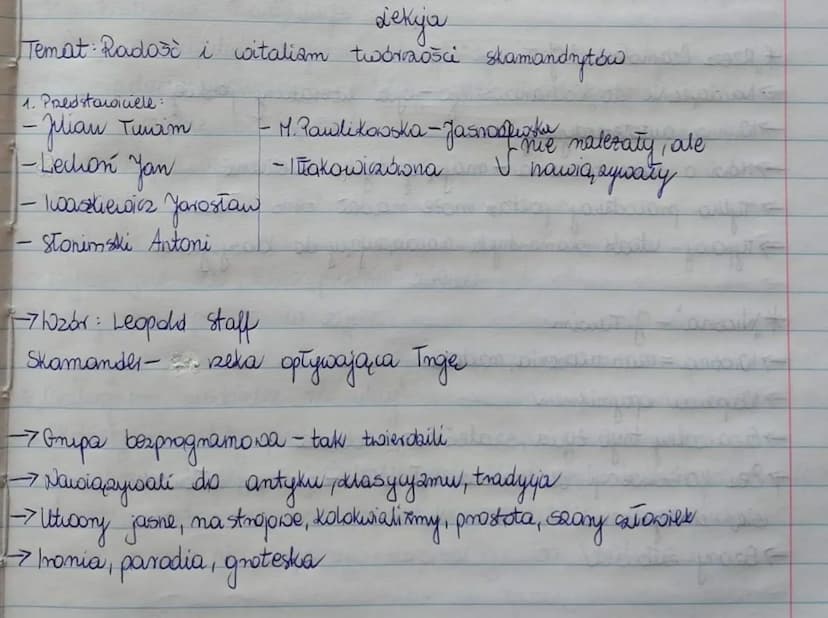 Lekcja
Temat: Radość i witalizm twórczości skamandrytów
1. Przedstawiciele:
- Julian Tuwim
- Lechoń Jan
- Iwaszkiewicz Jarosław
- Słonimski Antoni
- M. Pawlikowska-Jasnorzewska
- Iłłakowiczówna
nie należały, ale
nawiązywały
→ Wzór: Leopold Staff
Skamander- rzeka opływająca Troję
→ Grupa bezprogramowa - tak twierdzili
→ Nawiązywali do antyku, klasycyzmu, tradycja
→ Utwory jasne, nastrojowe, kolokwializmy, prostota, szary człowiek
→ Ironia, parodia, groteska